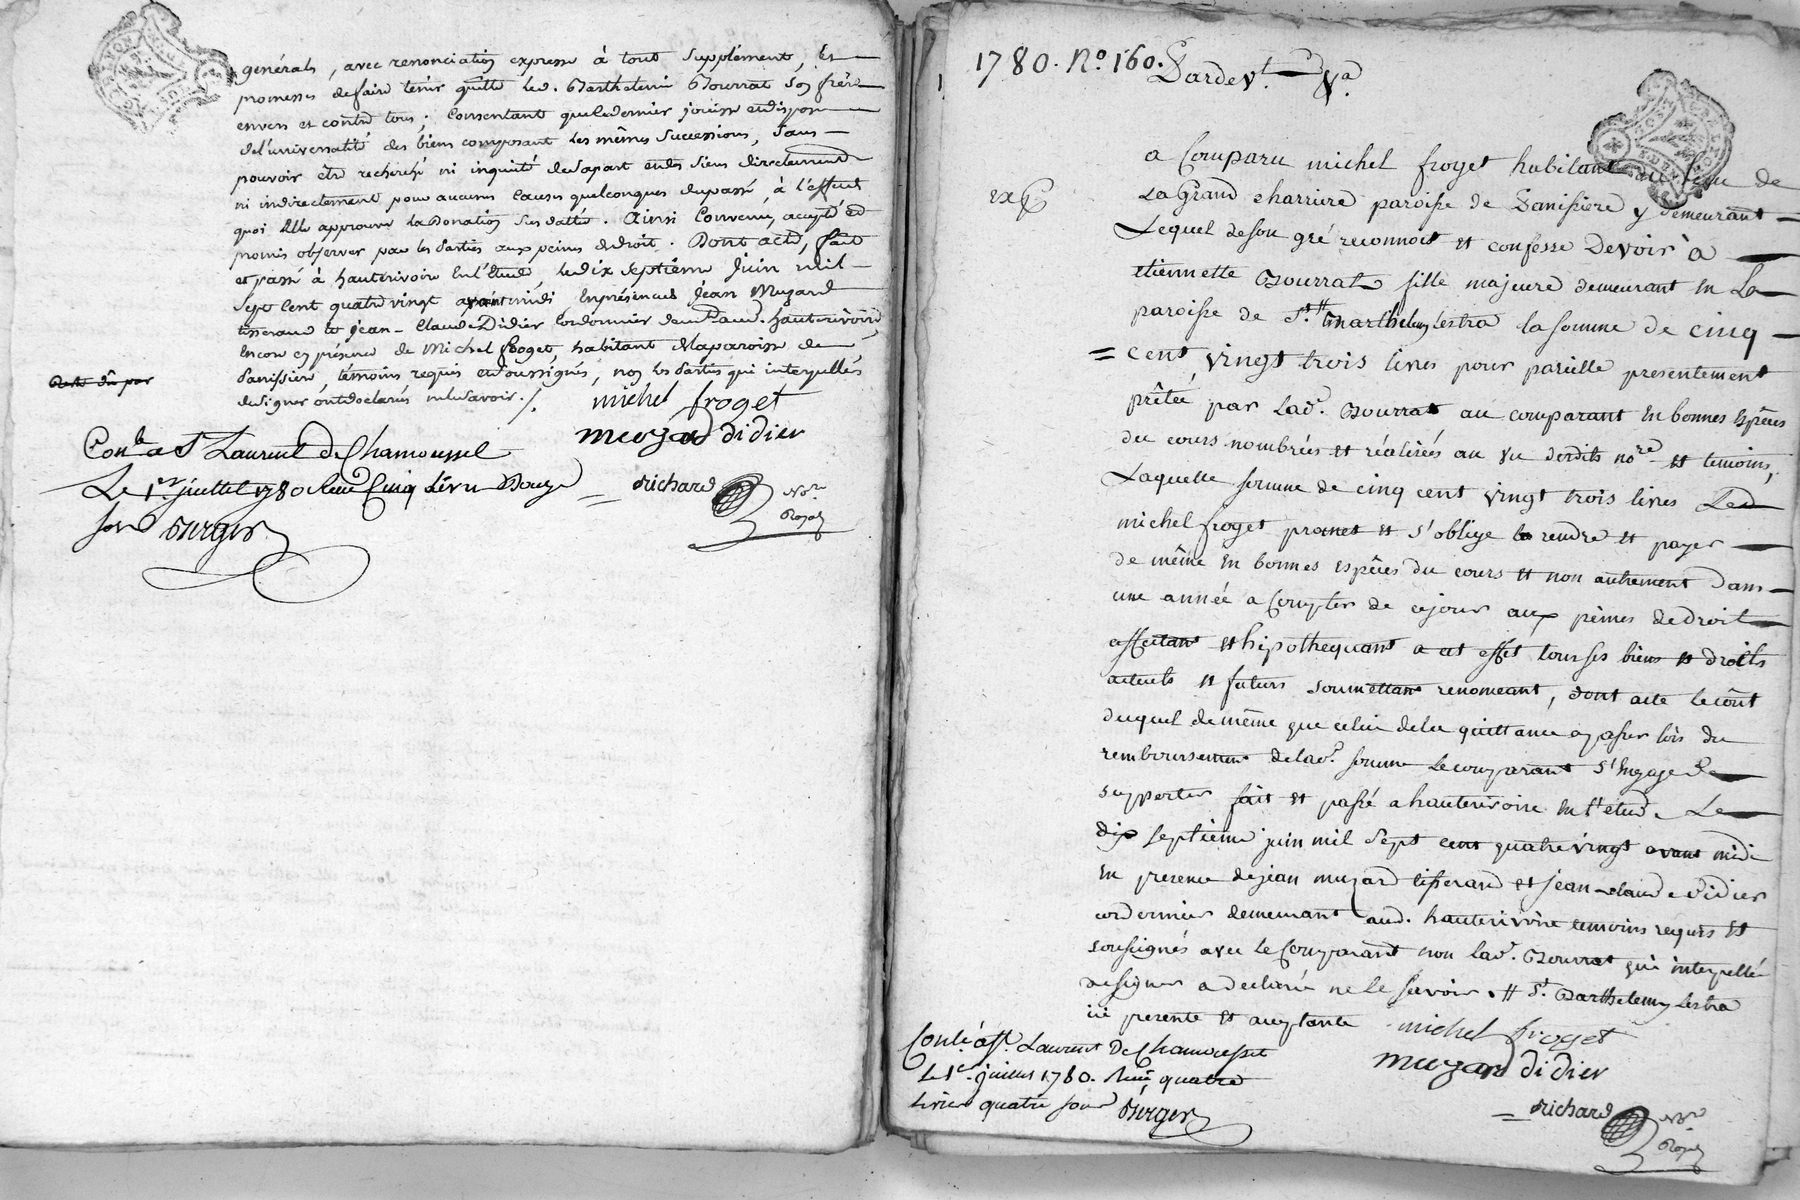 générals, avec renonciation expresse à tout supplément, Et
promesses defaire tenir quitte led. Barthelemi Bourrat son frère
envers et contre tous; Consentant queledernier jouisse etdispose
del'universalité des biens composant les mêmes Successions, Sans
pouvoir être recherché ni inquiété desapart etdes siens directement
ni indirectement pour aucunes Causes quelconques dupassé, à l'effet
quoi Elle approuve la Donation Sus datté. Ainsi Convenu, accepté et
promis observer par les Parties aux peines dedroit. Dont acte, fait
et passé à hauterivoire En l'Etude, Ledix septième juin mil
Sept Cent quatre vingt avant midi Enprésences Jean Muzard
tisserand et Jean-Claude Didier Cordonnier demts aud. hauterivoire
Encore en présence de Michel froget, habitant delaparoisse de
Panissiere, témoins requis etsoussignés, non les Parties qui interpellés
designer ontdéclarés nelesavoir./.
michel froget
muzard didier
Conlé a St Laurent de Chamousset
Le 1er juillet 1780 Reçu Cinq livres Douze
sous Berger
richard Nore
Royal
1780. No. 160.
a Comparu michel froget habitant du lieu de
La Grand charriere paroisse de Panissiere y demeurant
Lequel deson gré reconnoit et confesse Devoir à
etiennette Bourrat fille majeure demeurant en La
paroisse de St. Barthelemy Lestra la somme de cinq
cent vingt trois livres pour pareille presentement
prêtée par lade. Bourrat au comparant en bonnes Espêces
du cours nombrées et réalisées au vu desdits nore et temoins,
Laquelle somme de cinq cent vingt trois livres Led
michel froget promet et s'oblige la rendre et payer
de même en bonnes espêces du cours et non autrement Dans
une année a Compter de cejour aux peines dedroit
affectant et hipothequant a cet effet tous ses biens et droits
actuels et futurs soumettant renomeant, dont acte lecoût
duquel demême que celui dela quittance a passer lors du
remboursement delade. somme Lecomparant s'Engage De
supporter fait et passé a hauterivoire en l'etude Le
dix septieme juin mil sept cent quatre vingt avant midi
en presence dejean muzard tisserand et jean claude didier
cordonnier demeurant aud. hauterivoire temoins requis et
soussignés avec le Comparant non lade. Bourrat qui interpellée
designer a declaré ne le savoir. # St. Barthelemy Lestra
ici presente et acceptante
michel froget
muzard didier
Conlé. a St. Laurent De Chamousset
Le 1er. juillet 1780. Reçu quatre
livres quatre sous Berger
richard Nore
Royal